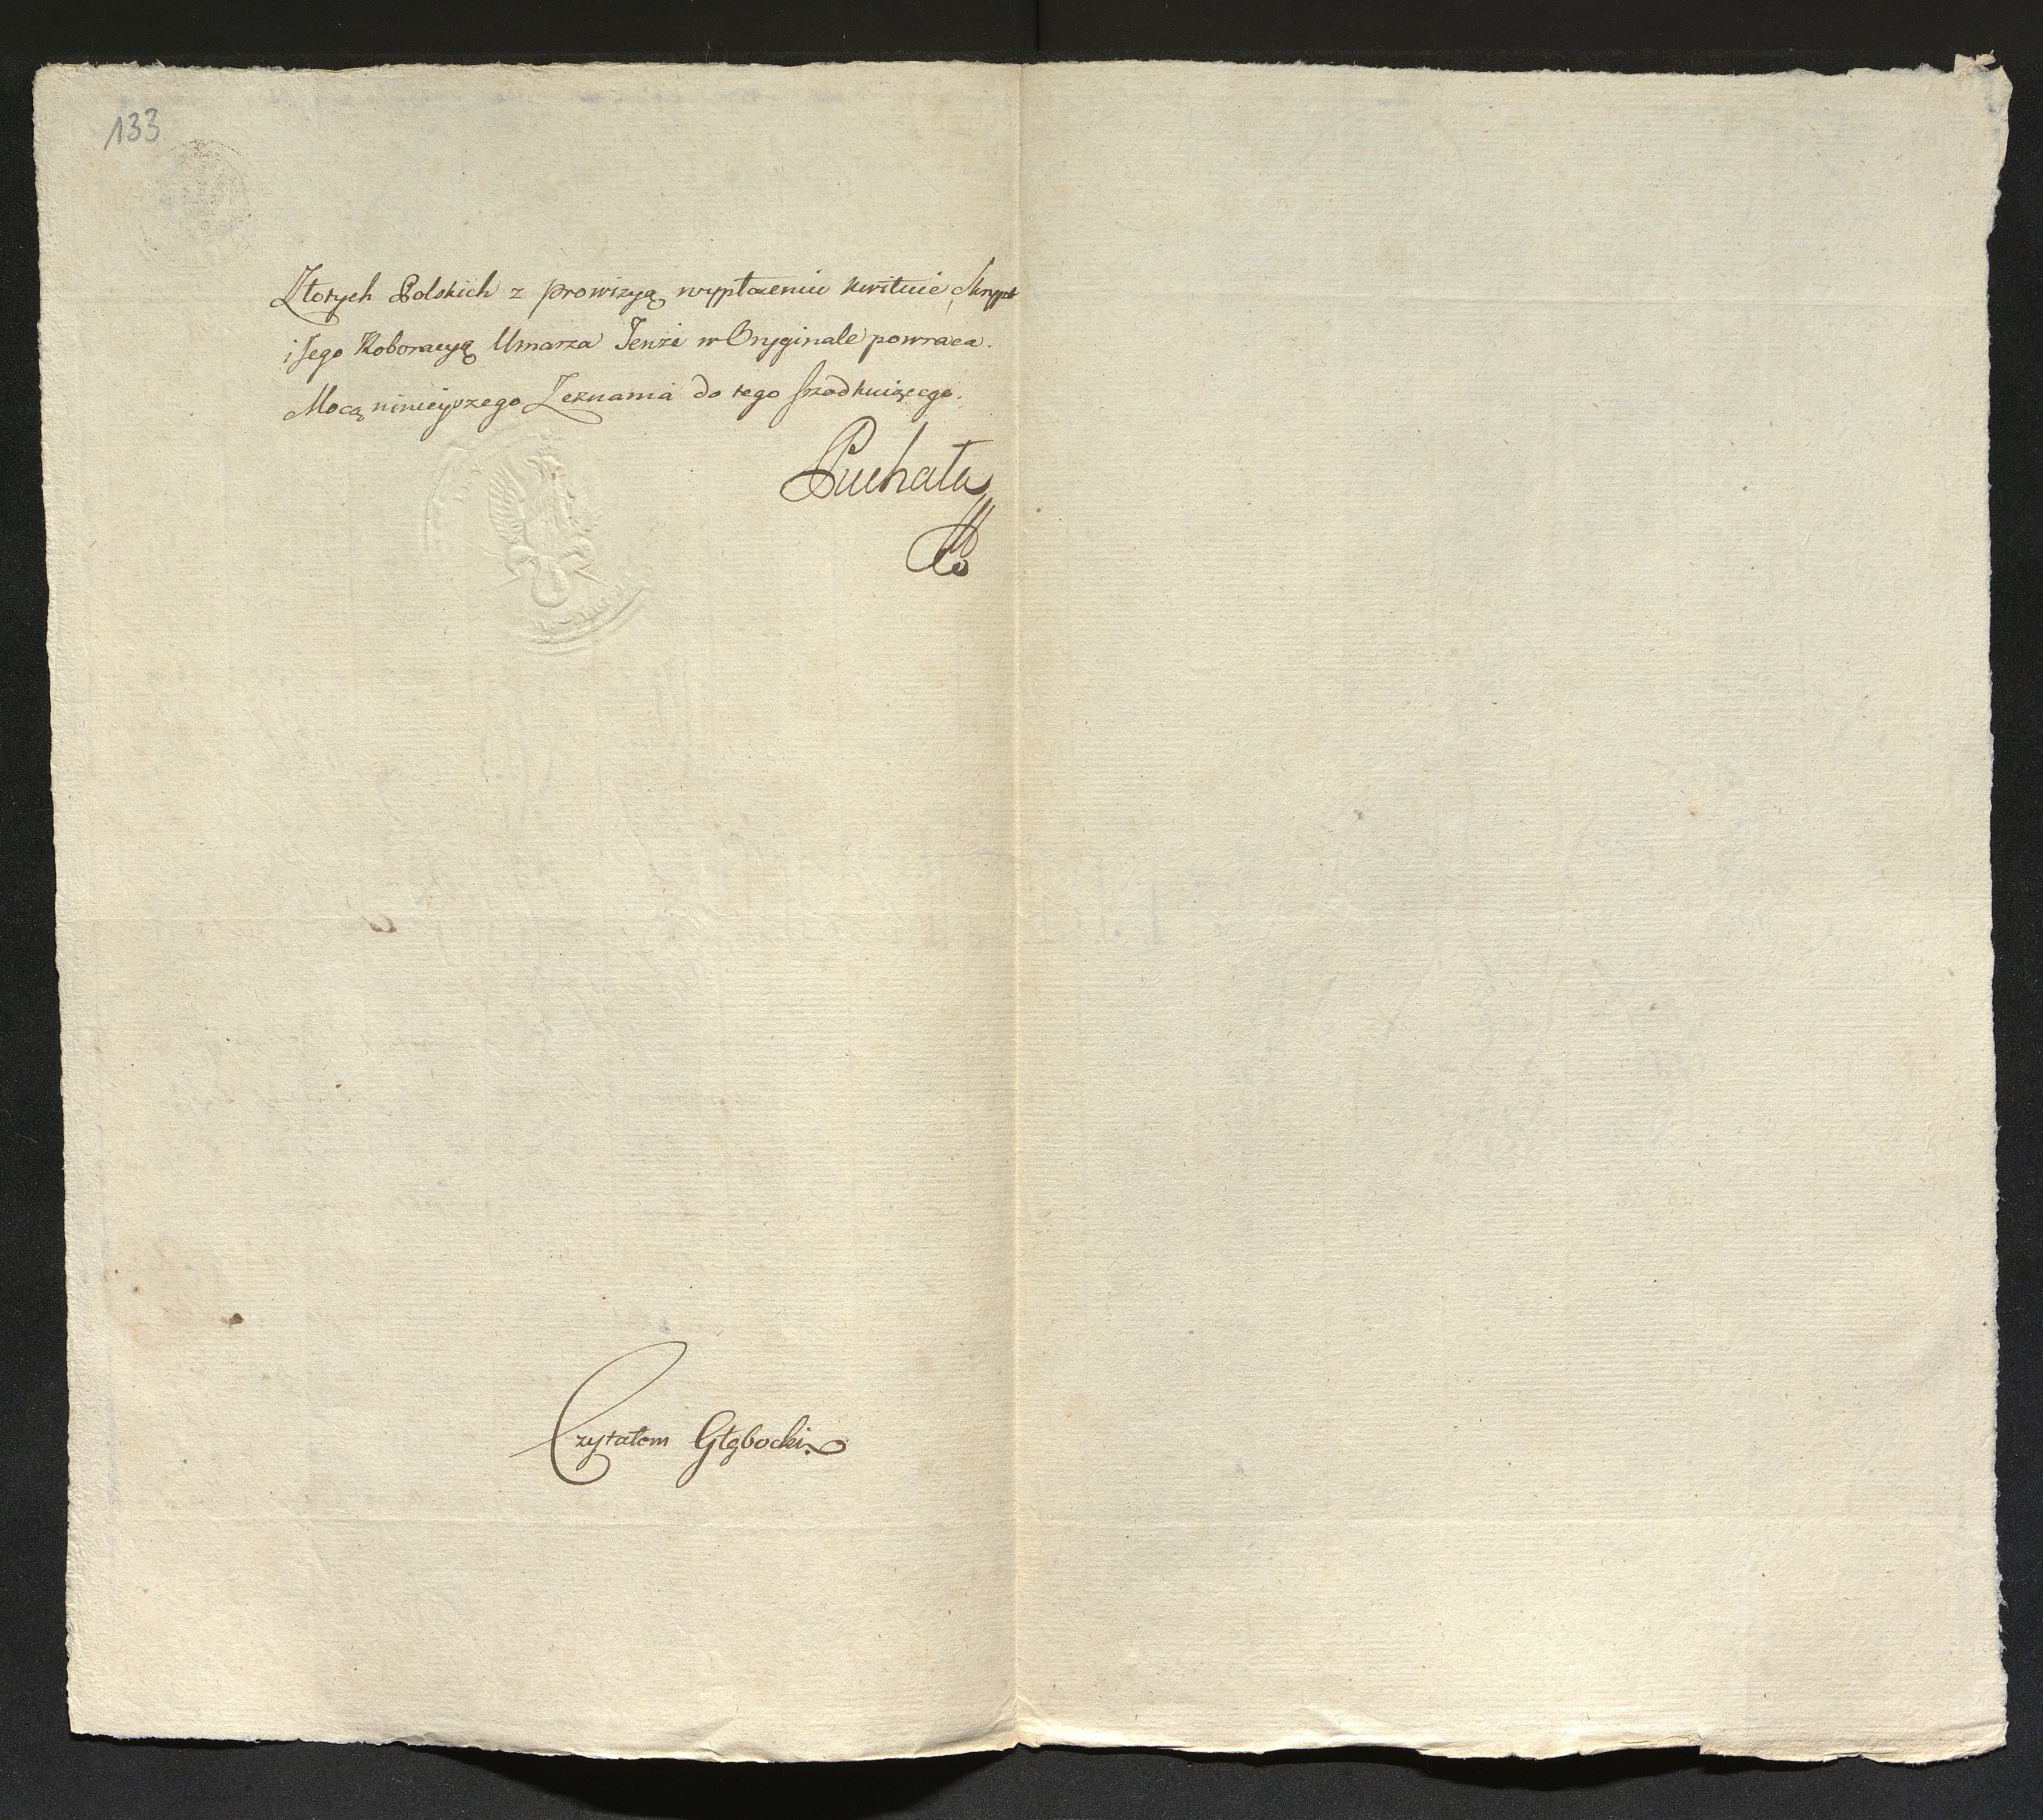 133
Złotych Polskich z prowizyą wypłaceniu kwituie Skrypt
i Jego Roboracyą Umarza Tenże w Oryginale powraca.
Mocą ninieyszego Zeznania do tego szrodkuiącego.
Puchała
Czytałem Głębocki